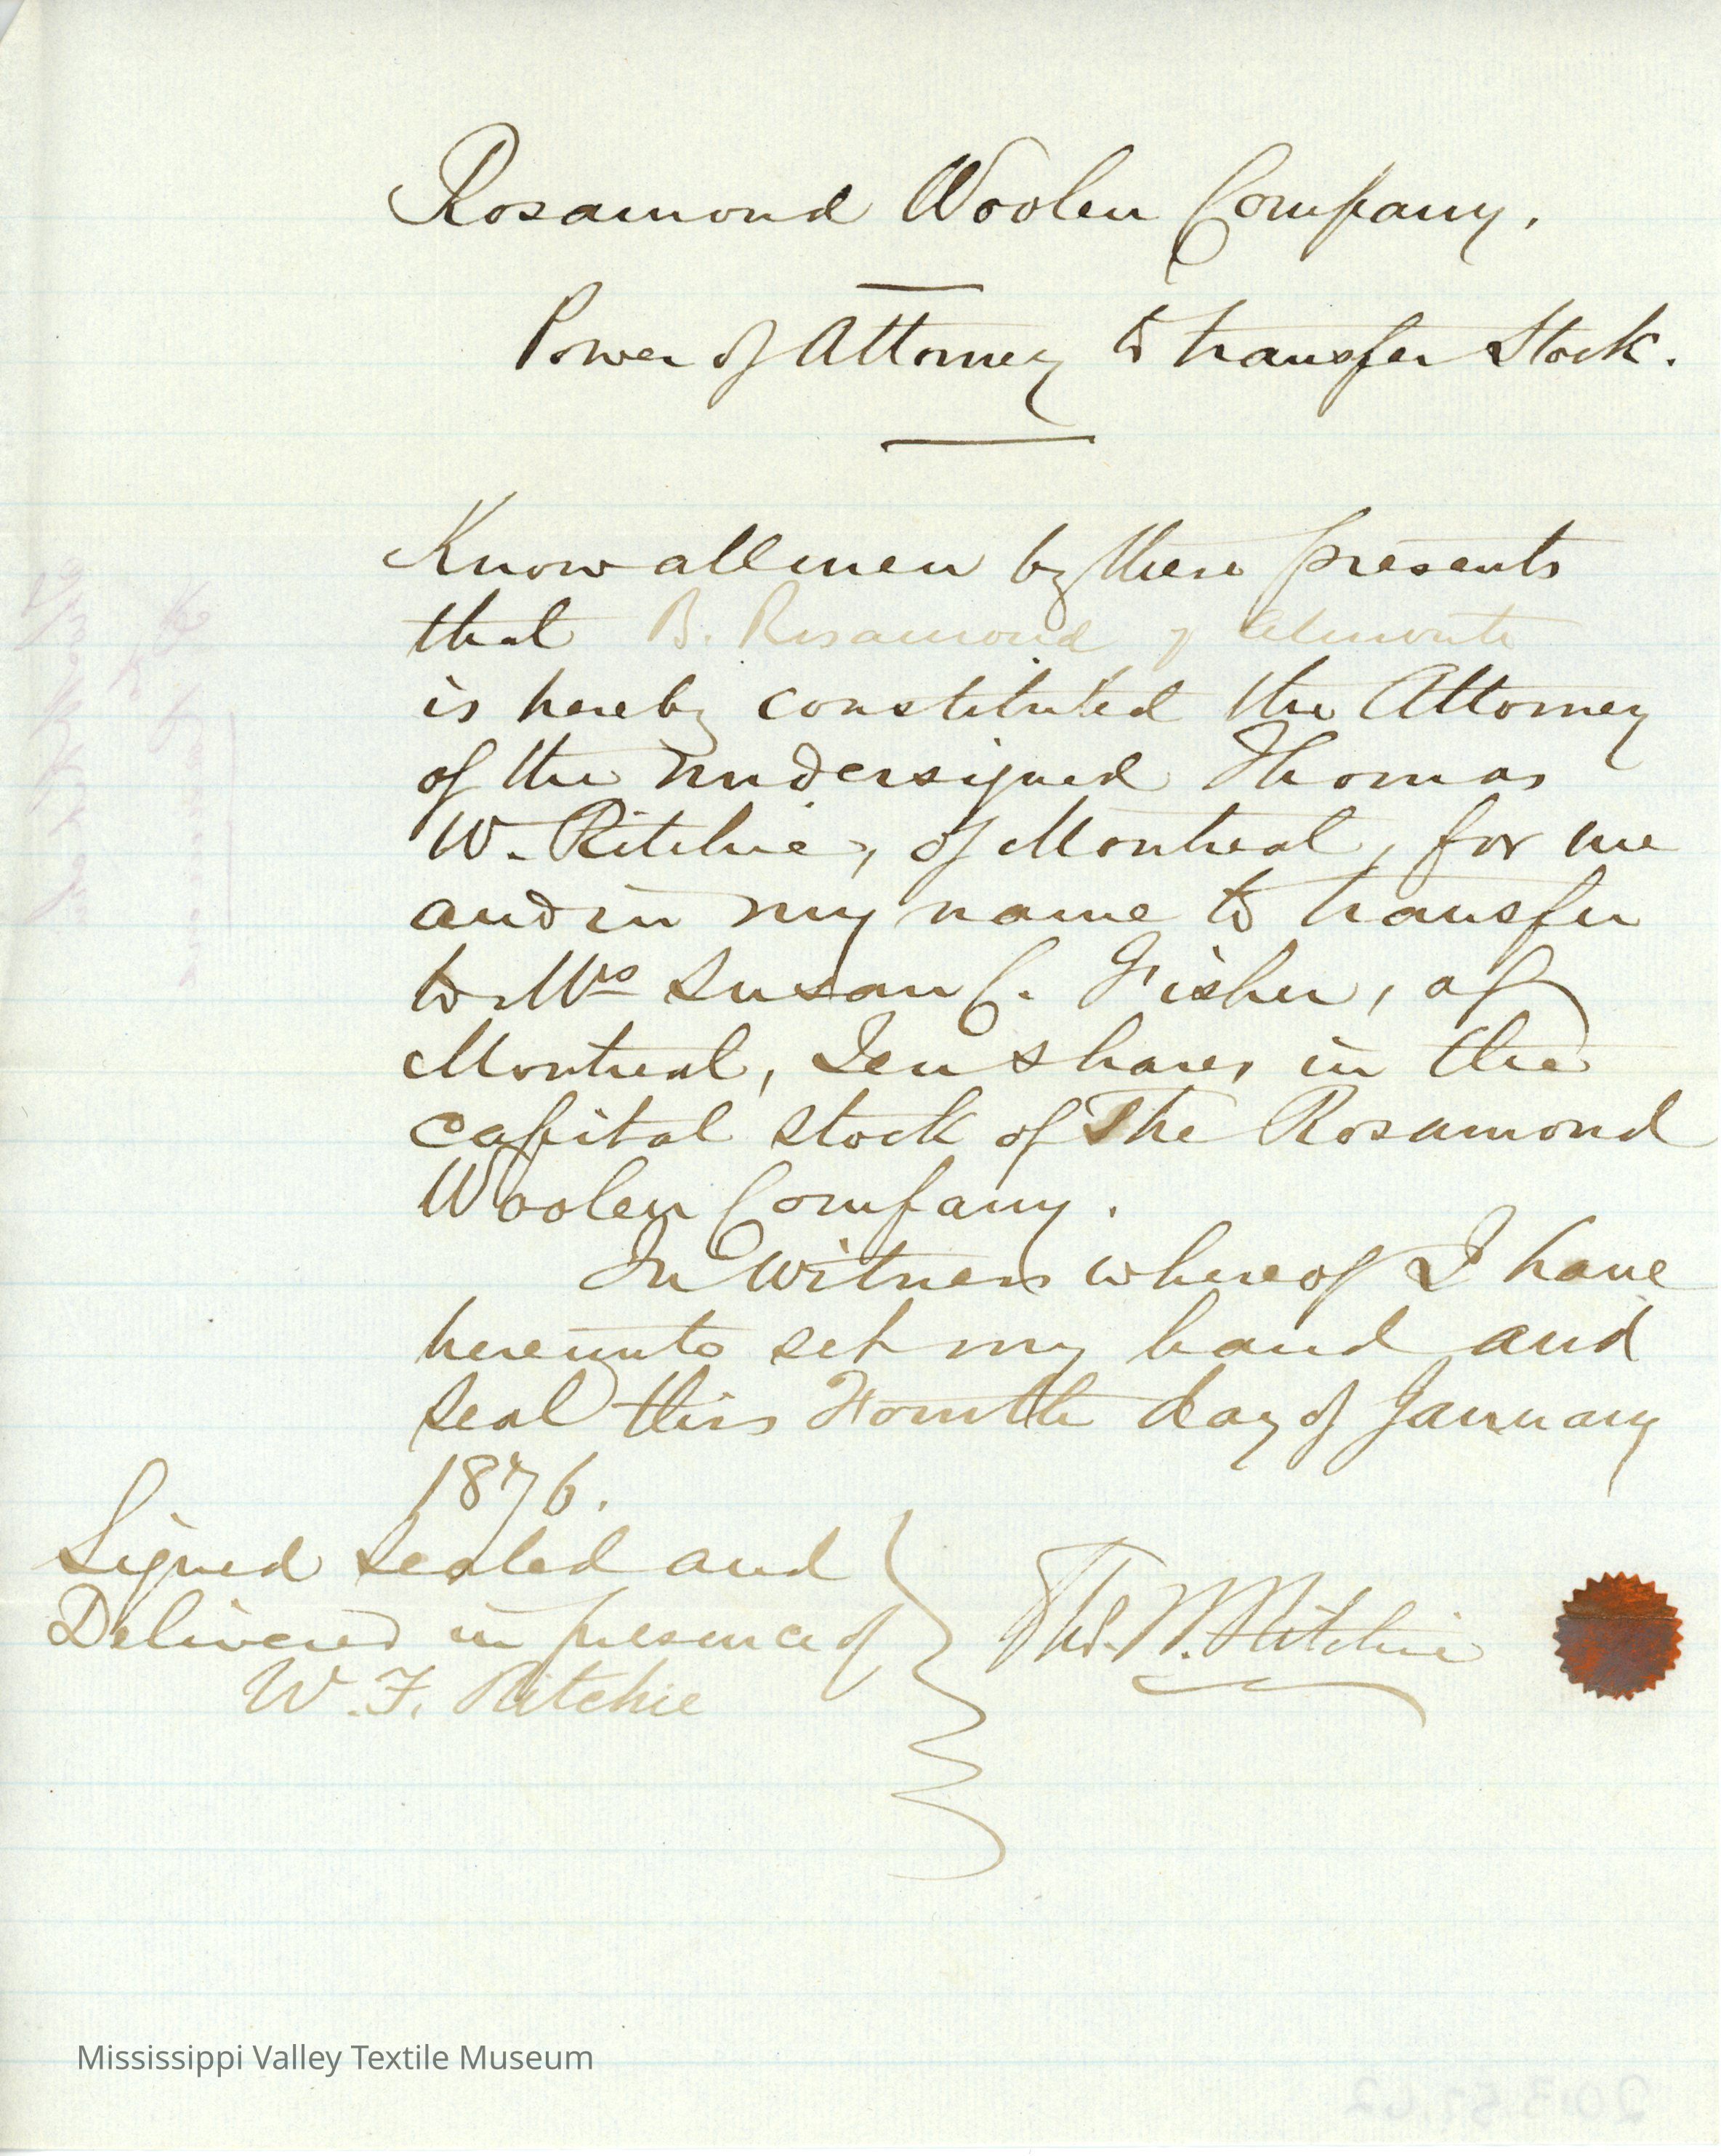 Rosamond Woolen Company.
Power of Attorney to transfer Stock.
Know all men by these presents
that B. Rosamond of Almonte
is hereby constituted the Attorney
of the undersigned Thomas
W. Ritchie, of Montreal, for me
and in my name to transfer
to Mrs Susan C. Fisher, of
Montreal, Ten shares in the
capital stock of The Rosamond
Woolen Company.
In Witness whereof I have
hereunto set my hand and
seal this Fourth day of January
1876.
Signed Sealed and
Delivered in presence of
W. F. Ritchie
Tho. W. Ritchie
Mississippi Valley Textile Museum